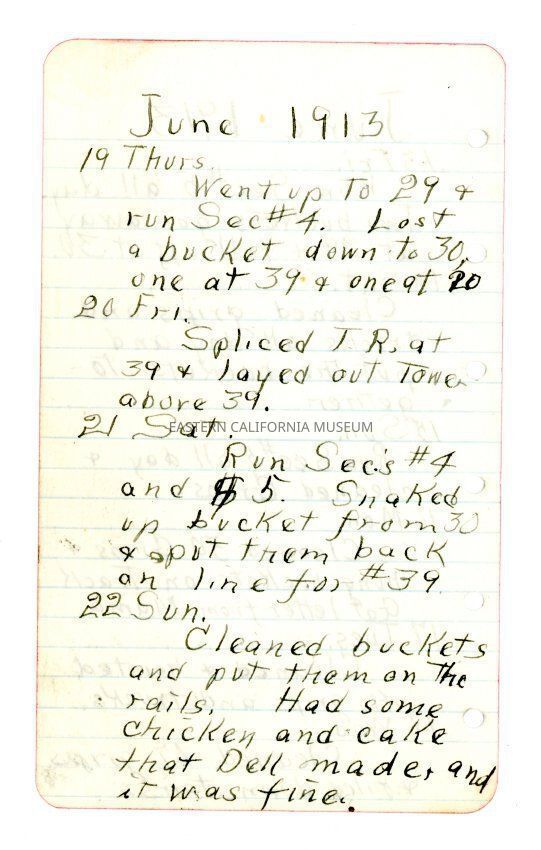 June 1913
19 Thurs.
Went up To 29 &
run Sec #4. Lost
a bucket down to 30,
one at 39 & one at 20
20 Fri.
Spliced T.R. at
39 & layed out Tower
above 39.
21 Sat.
EASTERN CALIFORNIA MUSEUM
Run Sec's #4
and #5. Snaked
up bucket from 30
& put them back
an line for #39
22 Sun.
Cleaned buckets
and put them on The
rails. Had some
chicken and cake
that Dell made, and
it was fine.